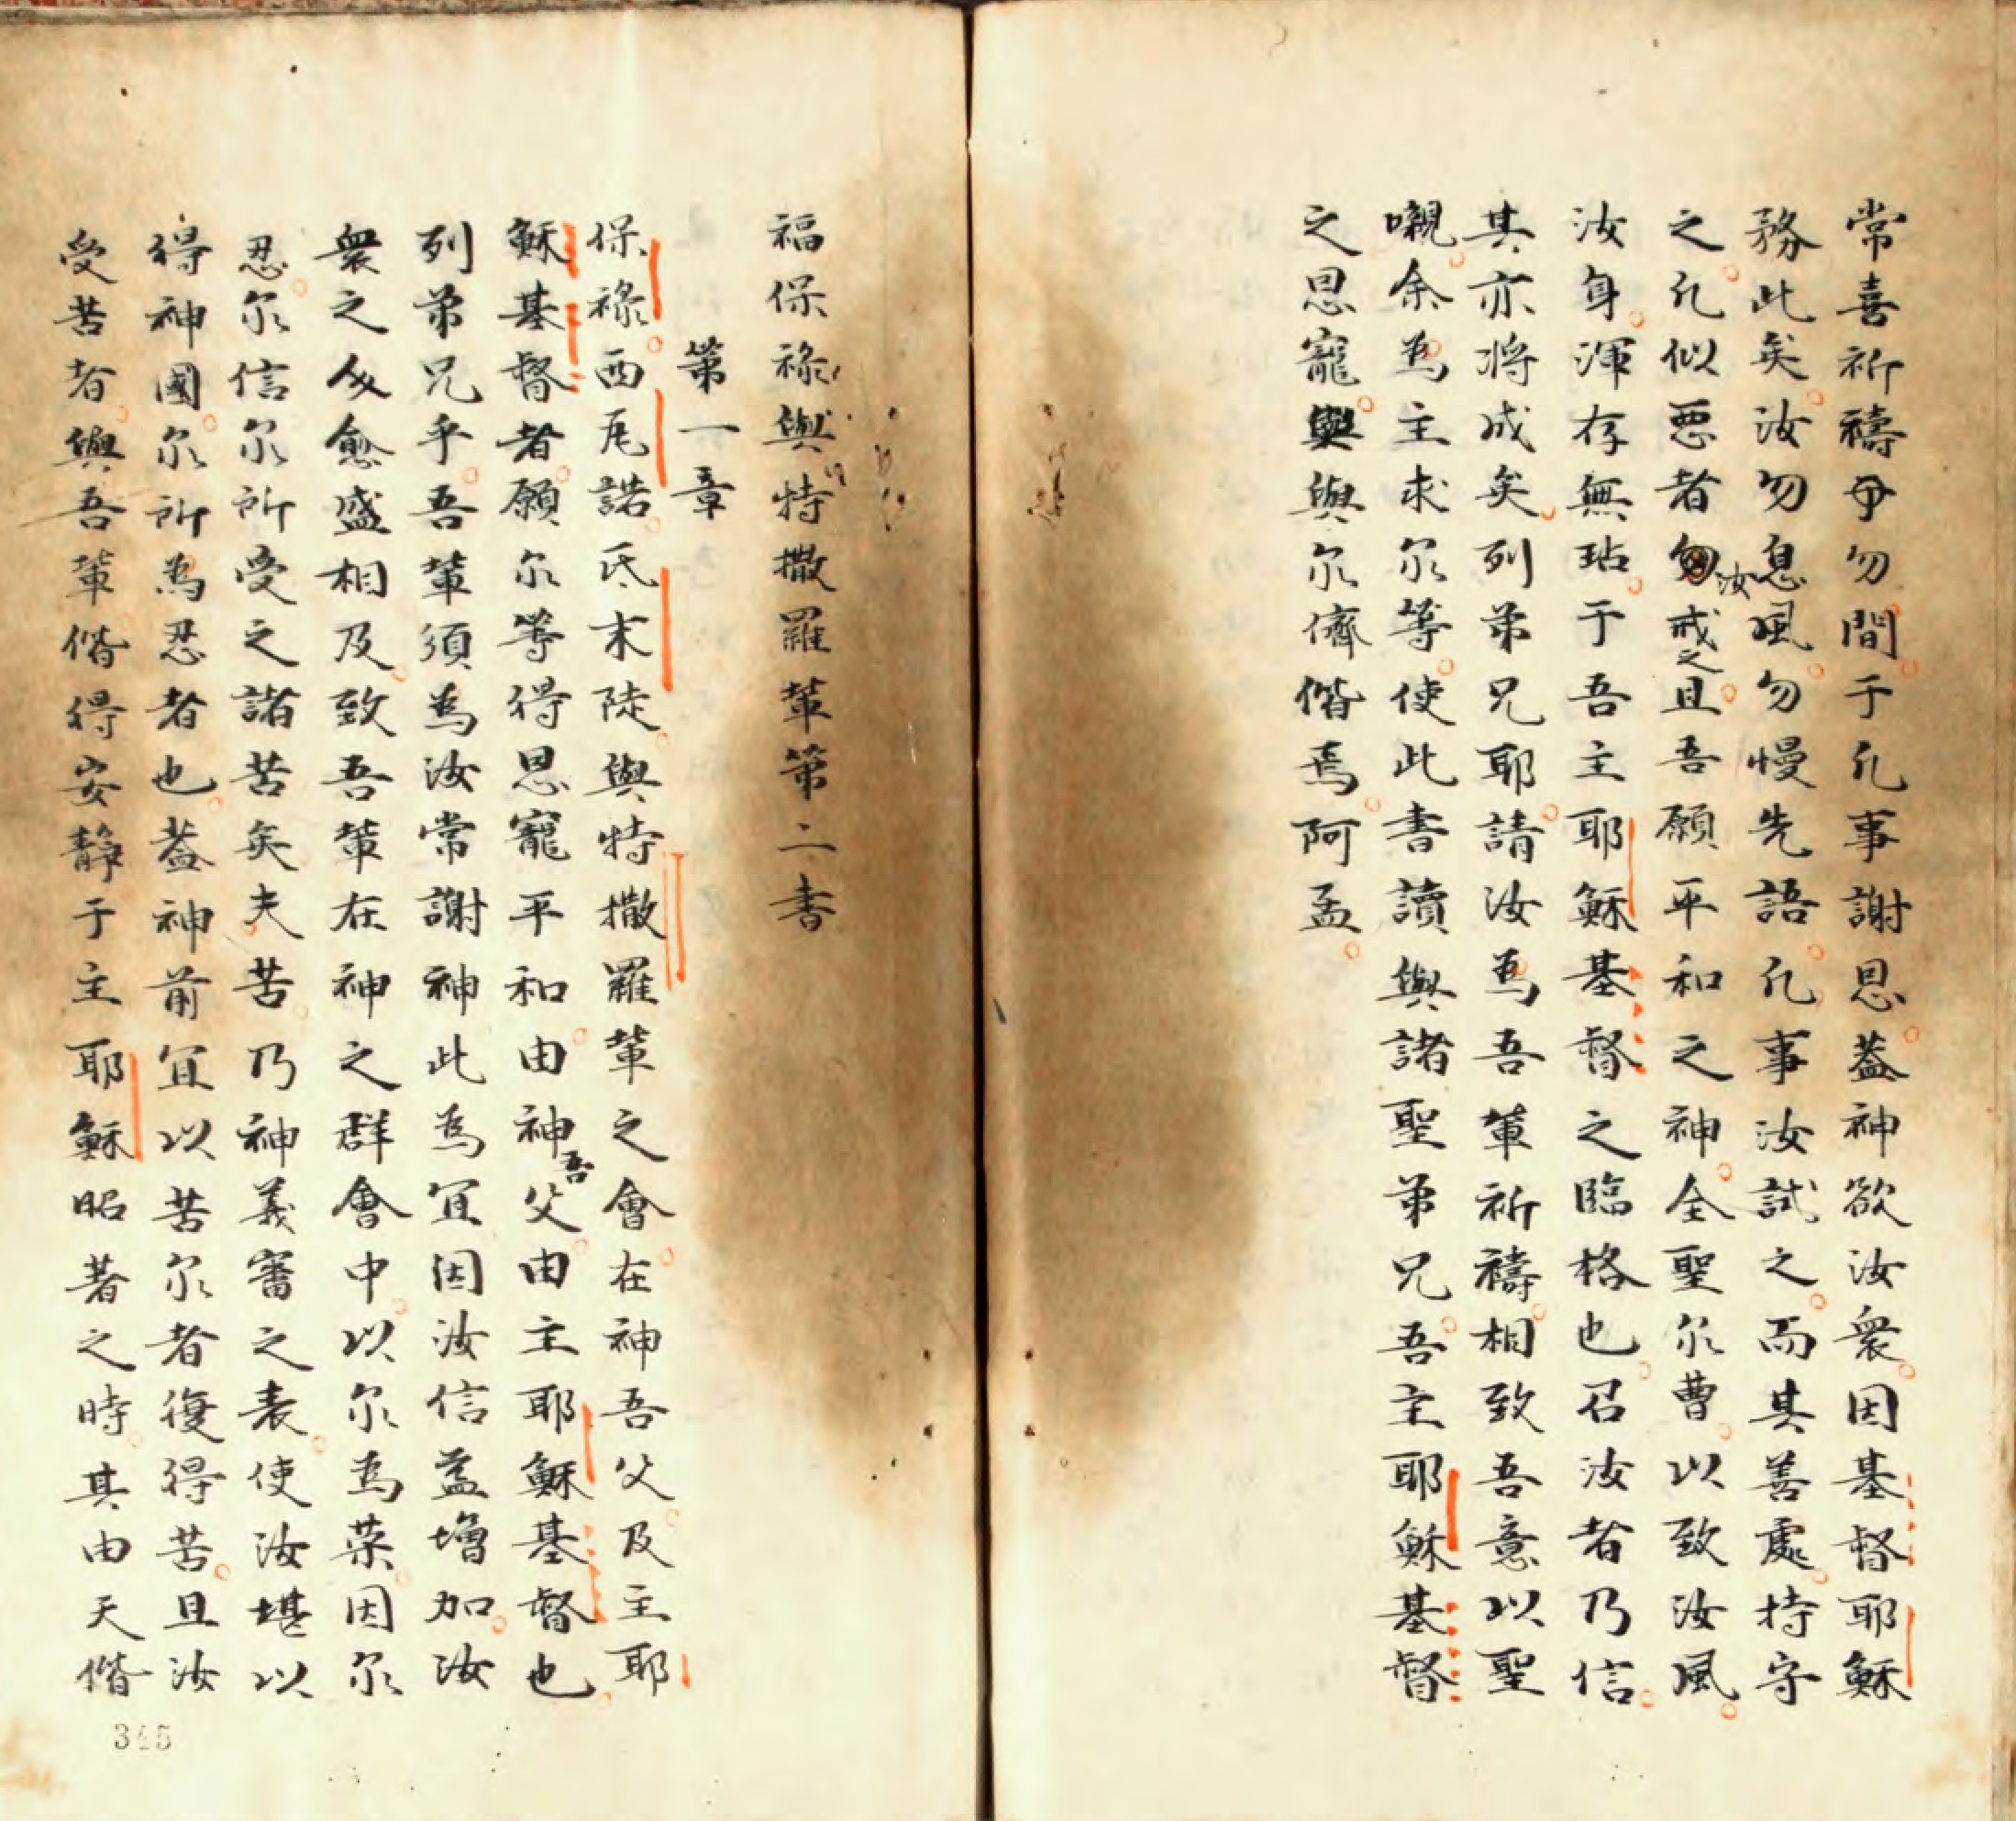 常喜祈禱勿間于凢事謝恩葢神欲汝衆因基督耶穌
務此矣汝勿息風勿慢先語凢事汝試之而其善處持守
之凢似悪者汝戒之且吾願平和之神全聖尔曹以致汝風
汝身渾存無玷于吾主耶穌基督之臨格也召汝者乃信
其亦将成矣列弟兄耶請汝為吾軰祈禱相致吾意以聖
嚫余為主求尔等使此書讀與諸聖弟兄吾主耶穌基督
之恩寵與尔儕偕焉阿孟
福保祿與特撒羅軰第二書
第一章
保祿西尾諾氐末陡與特撒羅軰之會在神吾父及主耶
穌基督者願尔等得恩寵平和由神吾父由主耶穌基督也
列弟兄乎吾軰須為汝常謝神此為宜因汝信益增加汝
衆之友愈盛相及致吾軰在神之群會中以尔為荣因尔
忍尔信尔所受之諸苦矣夫苦乃神義審之表使汝堪以
得神國尔所為忍者也葢神前宜以苦尔者復得苦且汝
受苦者與吾軰偕得安靜于主耶穌昭著之時其由天偕
345